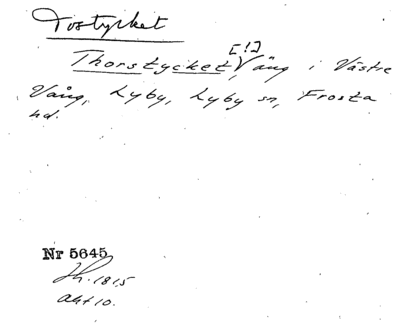 Tostycket
[!]
Thorstycket, äng i Västre
Vång, Lyby, Lyby sn, Frosta
hd.
Nr 5645
Lh. 1815
Akt 10.